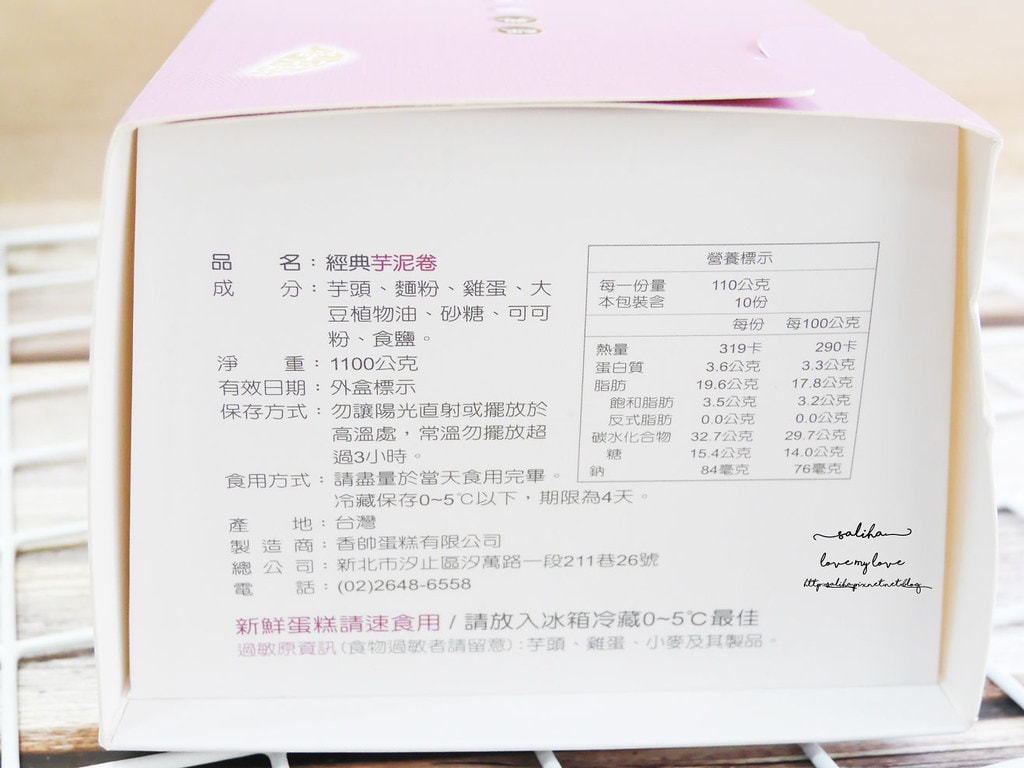 品　　名：經典芋泥卷
成　　分：芋頭、麵粉、雞蛋、大
豆植物油、砂糖、可可
粉、食鹽。
淨　　重：1100公克
有效日期：外盒標示
保存方式：勿讓陽光直射或擺放於
高溫處，常溫勿擺放超
過3小時。
食用方式：請盡量於當天食用完畢。
冷藏保存0~5℃以下，期限為4天。
產　　地：台灣
製 造 商：香帥蛋糕有限公司
總 公 司：新北市汐止區汐萬路一段211巷26號
電　　話：(02)2648-6558
新鮮蛋糕請速食用 / 請放入冰箱冷藏0~5℃最佳
過敏原資訊(食物過敏者請留意)：芋頭、雞蛋、小麥及其製品。
營養標示
每一份量 110公克
本包裝含 10份
每份 每100公克
熱量 319卡 290卡
蛋白質 3.6公克 3.3公克
脂肪 19.6公克 17.8公克
飽和脂肪 3.5公克 3.2公克
反式脂肪 0.0公克 0.0公克
碳水化合物 32.7公克 29.7公克
糖 15.4公克 14.0公克
鈉 84毫克 76毫克
saliha
love my love